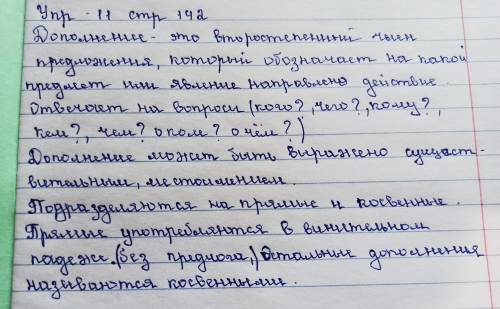 Упр - 11 стр 142
Дополнение - это второстепенный член
предложения, который обозначает на какой
предмет или явление направлено действие.
Отвечает на вопросы (кого?, чего?, кому?,
кем?, чем? о ком? о чём?)
Дополнение может быть выражено сущест-
вительным, местоимением.
Подразделяются на прямые и косвенные.
Прямые употребляются в винительном
падеже. (без предлога,) Остальные дополнения
называются косвенными.